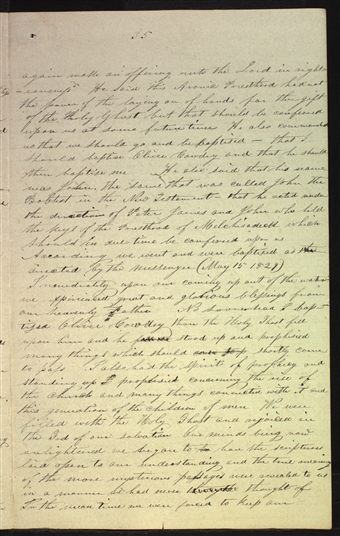 35
again make an offering unto the Lord in right
eousness" He said this Aronic Priesthood had not
the power of the laying on of hands for the gift
of the Holy Ghost but that should be confered
upon us at some future time He also commanded
us that we should go and be baptised — that I
should baptise Oliver Cowdry and that he should
then baptise me He also said that his name
was John, the same that was called John the
Baptist in the New Testament — that he acted under
the direction of Peter James and John who held
the keys of the Priesthood of Melchisedeck which
should in due time be confered upon us
According we went and were baptised as
directed by the messenger (May 15 1829)
Immediately upon our coming up out of the water
we experienced great and glorious blessings from
our heavenly Father No sooner had I bap
tised Oliver Cowdry than the Holy Ghost fell
upon him and he stood up and prophesied
many things which should shortly come
to pass I also had the spirit of prophecy and
standing up I prophesied concerning the rise of
the church and many things connected with it and
this generation of the children of men We were
filled with the Holy Ghost and rejoiced in
the God of our salvation Our minds being now
enlightened we began to have the scriptures
laid open to our understanding and the true meaning
of the more mysterious passages were revealed to us
in a manner we had never thought of
In the mean time we were forced to keep our